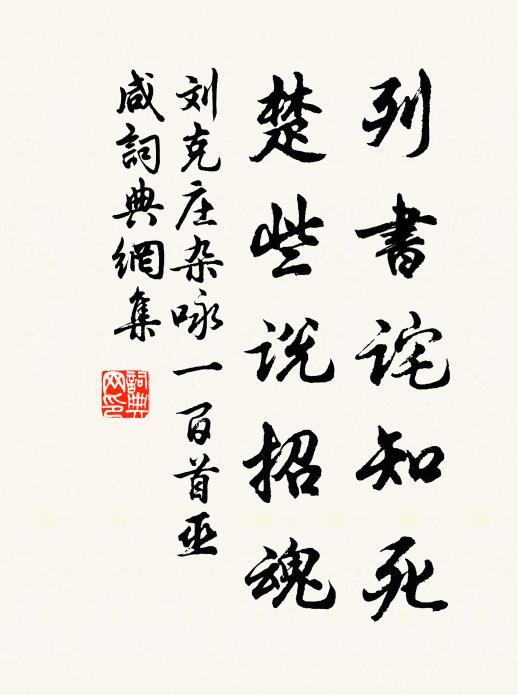 列書诧知死
楚些说招魂
刘克庄杂咏一百首巫
咸詞典網集
詞典网印